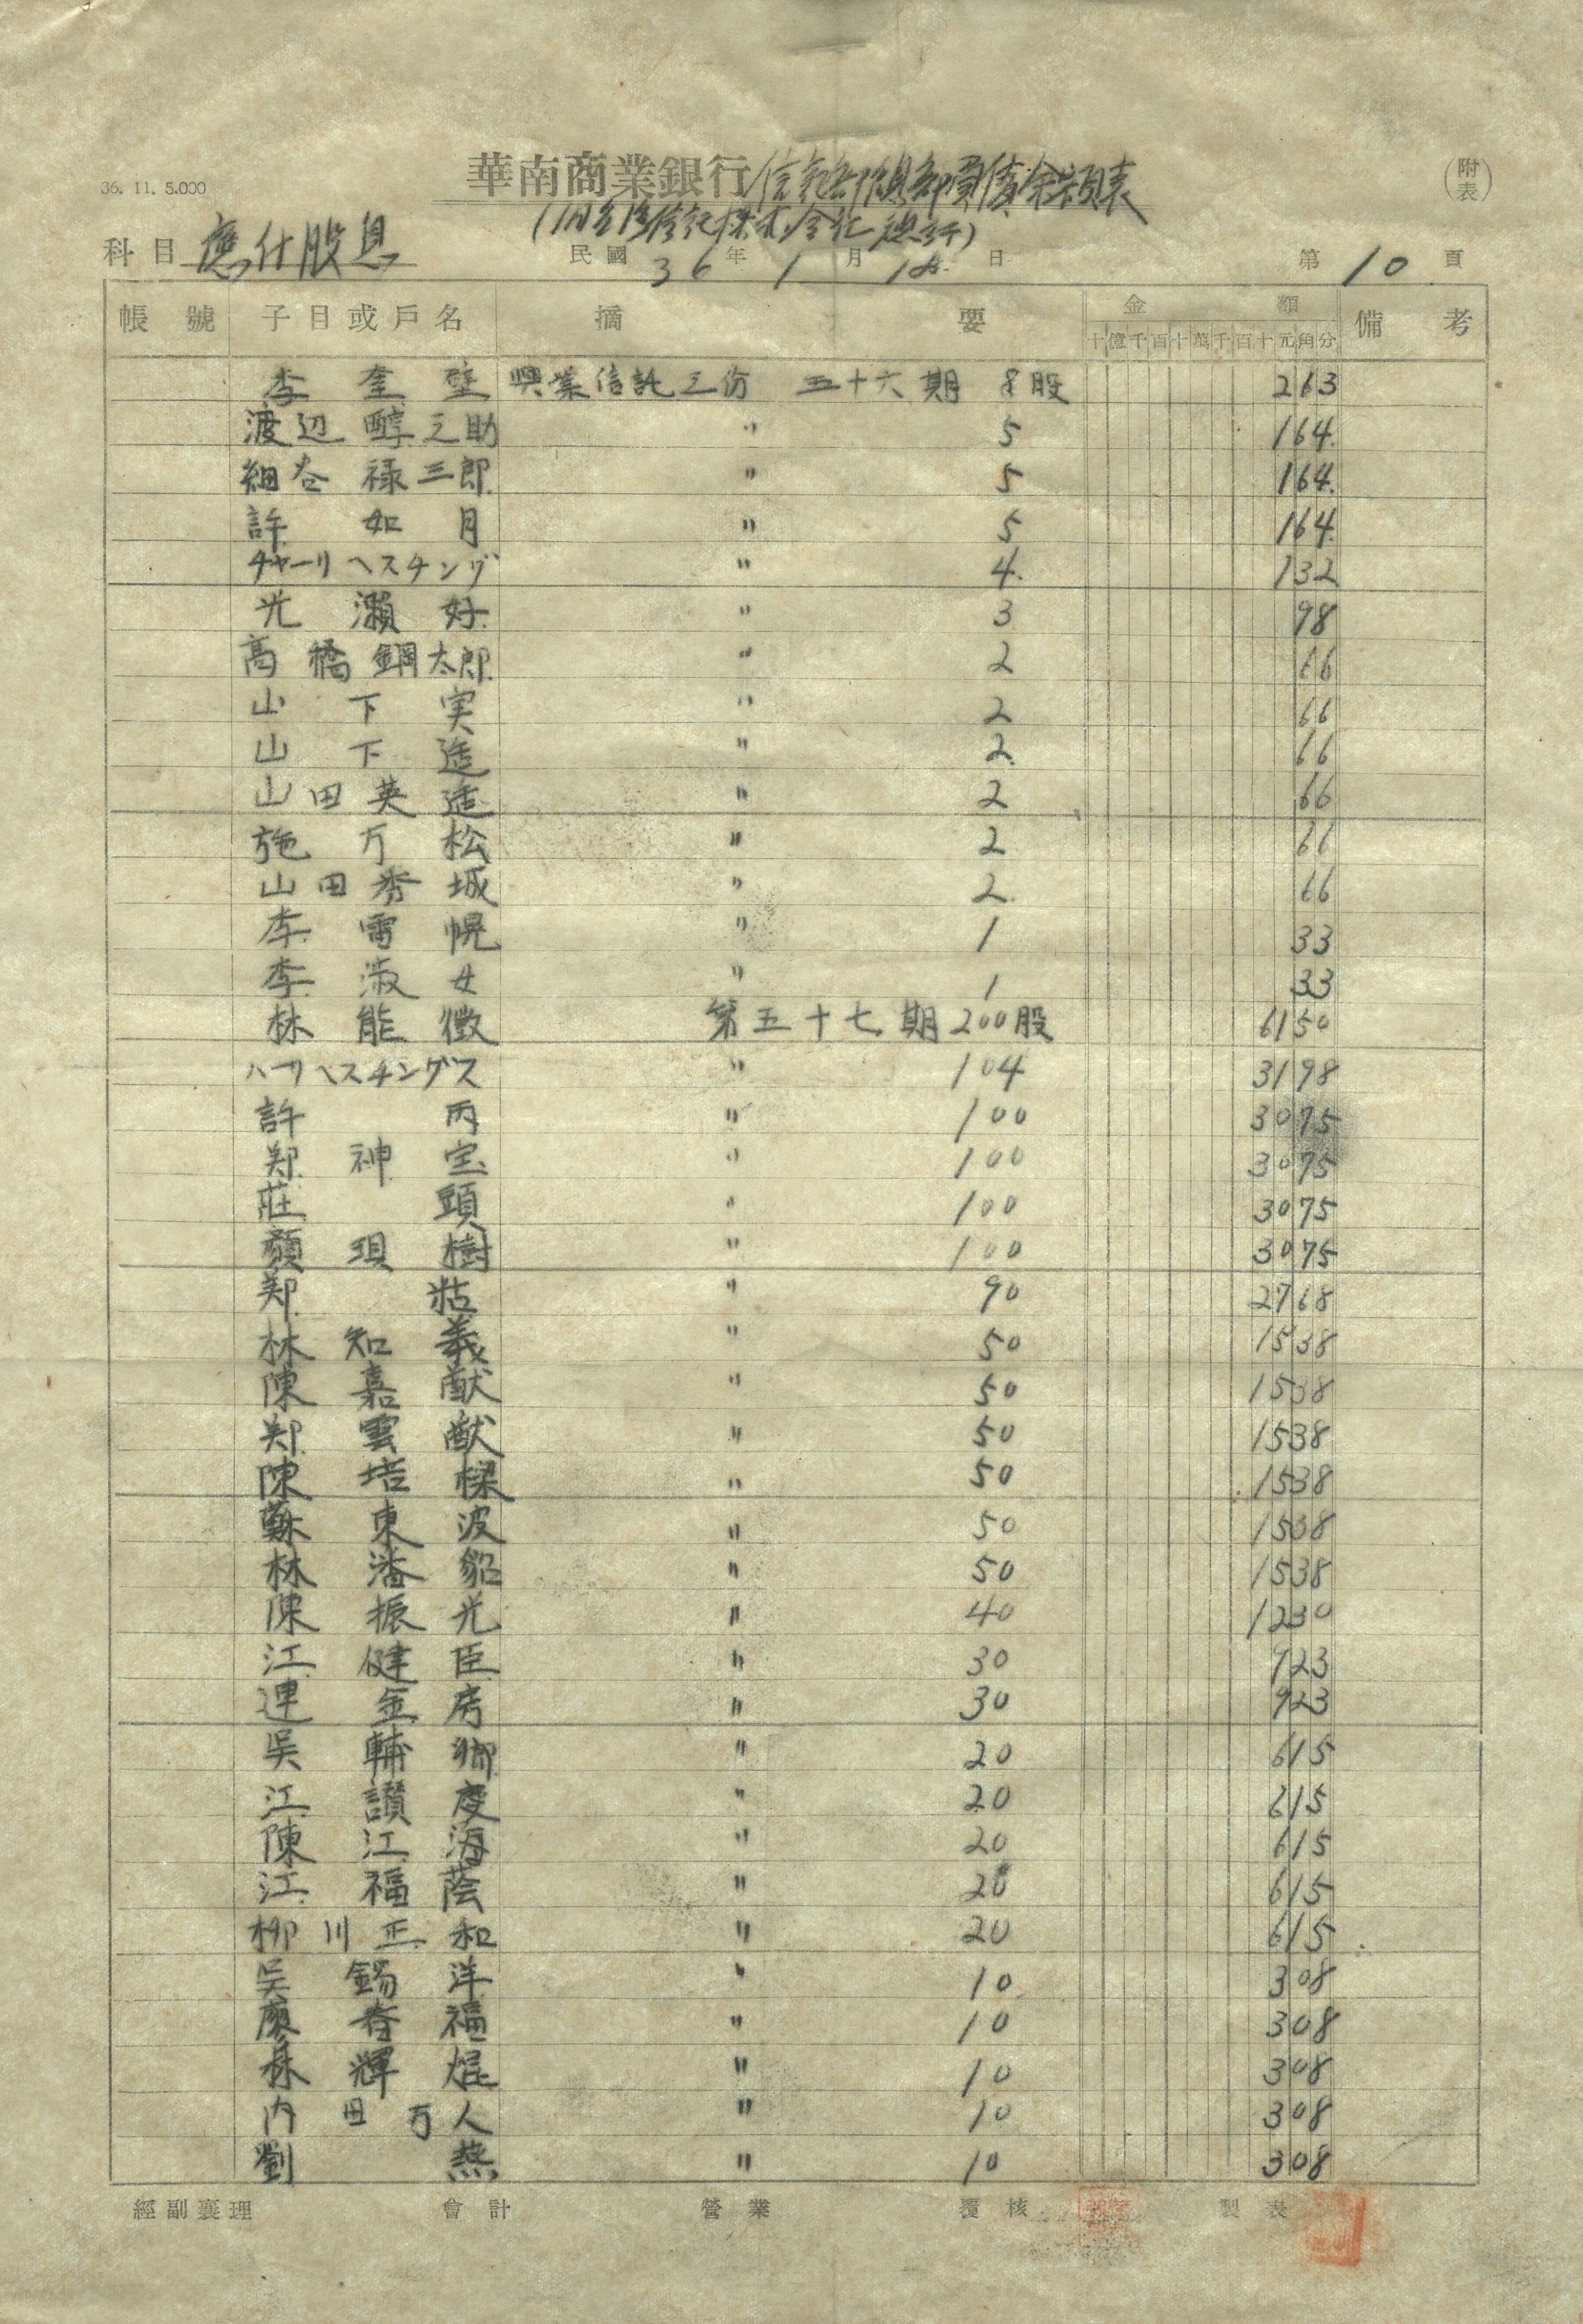 36. 11. 5.000
華南商業銀行信託部總部負債余額表
(附表)
(旧台湾信託株式会社總計)
科目 應付股息 民國 36 年 1 月 日 第 10 頁
帳號 子目或戶名 摘要 金額 備考
十億千百十萬千百十元角分
李 奎 壁 興業信託之份 五十六期 8股 263
渡辺 醇之助 〃 5 164
細谷 禄三郎 〃 5 164
許 如 月 〃 5 164
チャーリヘスチング 〃 4 132
光 瀬 好 〃 3 98
高橋 鋼太郎 〃 2 66
山 下 実 〃 2 66
山 下 造 〃 2 66
山田英造 〃 2 66
施 万 松 〃 2 66
山田秀城 〃 2 66
李 雷 幌 〃 1 33
李 淑 女 〃 1 33
林 能 徴 第五十七期 200股 6150
ハーリヘスチングス 〃 104 3198
許 丙 〃 100 3075
郑 神 宝 〃 100 3075
莊 頭 〃 100 3075
顏 項 樹 〃 100 3075
郑 粘 〃 90 2768
林 知 義 〃 50 1538
陳 嘉 猷 〃 50 1538
郑 雲 猷 〃 50 1538
陳 培 樑 〃 50 1538
蘇 東 波 〃 50 1538
林 潘 貂 〃 50 1538
陳 振 光 〃 40 1230
江 健 臣 〃 30 923
連 金 房 〃 30 923
吳 輔 卿 〃 20 615
江 讃 慶 〃 20 615
陳 江 海 〃 20 615
江 福 蔭 〃 20 615
柳川正和 〃 20 615
吳 錫 洋 〃 10 308
廖 春 福 〃 10 308
林 輝 焜 〃 10 308
内田万人 〃 10 308
劉 燕 〃 10 308
經副襄理 會計 營業 覆核 製表